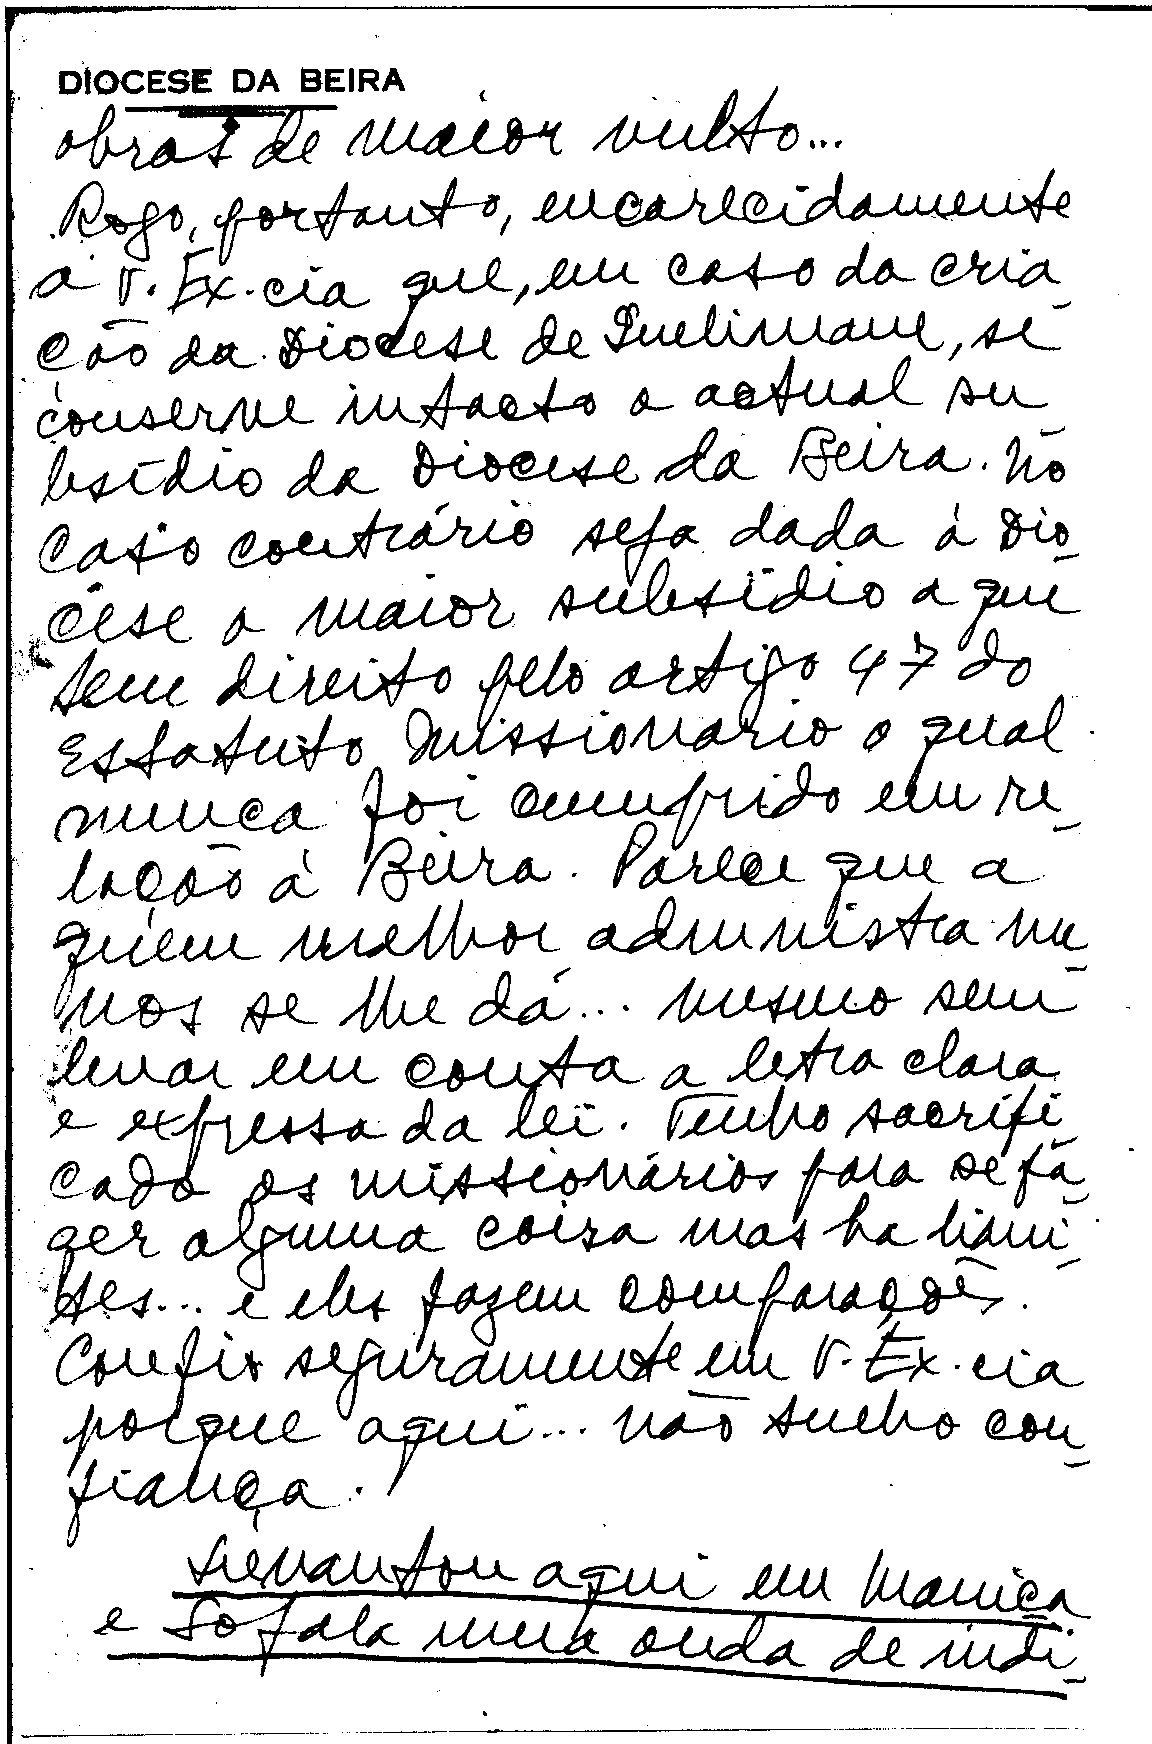 DIOCESE DA BEIRA
obras de maior vulto...
Rogo, portanto, encarecidamente
a V. Ex.cia que, em caso da cria_
ção da Diocese de Quelimane, se
conserve intacto o actual su_
bsídio da Diocese da Beira. No
caso contrário seja dada à Dio_
cese o maior subsídio a que
tem direito pelo artigo 47 do
Estatuto Missionario o qual
nunca foi cumprido em re_
lação à Beira. Parece que a
quem melhor administra me_
nos se lhe dá... mesmo sem
levar em conta a letra clara
e expressa da lei. Tenho sacrifi_
cado os missionários para se fa_
zer alguma coisa mas ha limi_
tes... e eles fazem comparações.
Confio seguramente em V. Ex.cia
porque aqui... não tenho con_
fiança.
Levantou aqui em Manica
e Sofala uma onda de indi_